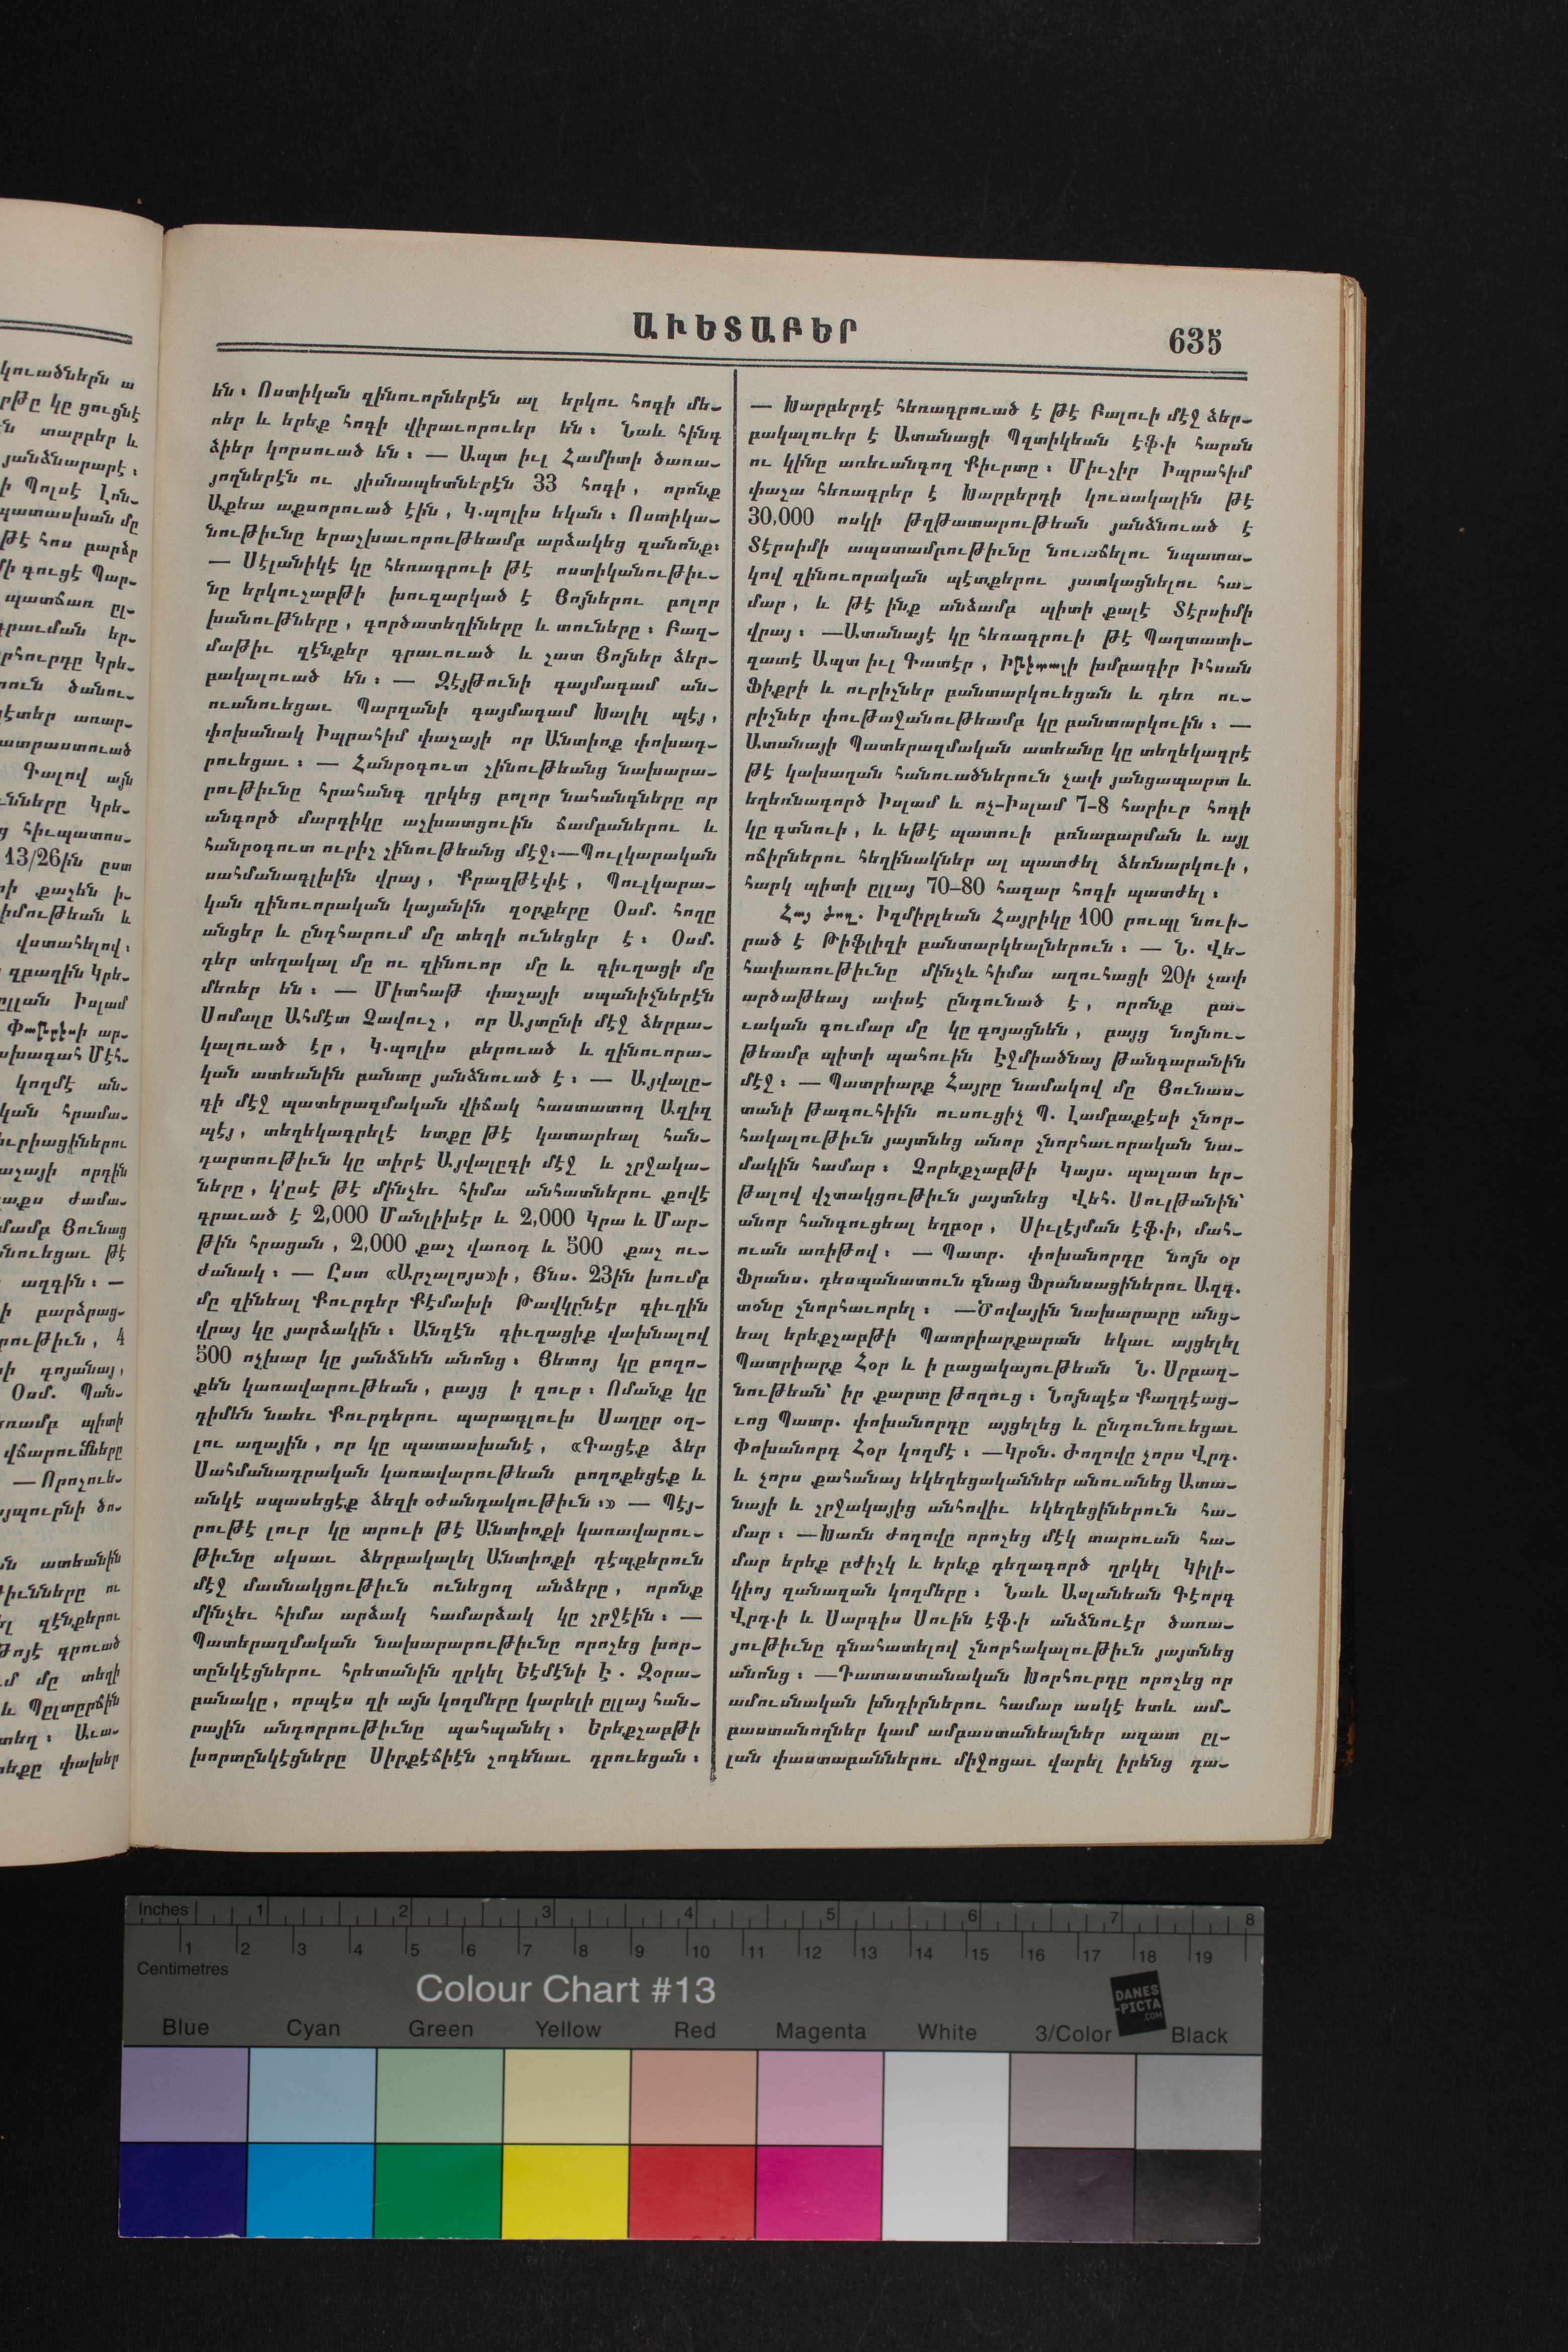 ԱՒԵՏԱԲԵՐ
635
են։ Ոստիկան զինուորներէն ալ երկու հոգի մե–
ռեր և երեք հոգի վիրաւորուեր են։ Նաև հինգ
ձիեր կորսուած են։ — Ապտ իւլ Համիտի ծառա–
յողներէն ու յիսնապետներէն 33 հոգի, որոնք
Աքեա աքսորուած էին, Կ.պոլիս եկան։ Ոստիկա–
նութիւնը երաշխաւորութեամբ արձակեց զանոնք։
— Սէլանիկէ կը հեռագրուի թէ ոստիկանութիւ–
նը երկուշաբթի խուզարկած է Յոյներու բոլոր
խանութները, գործատեղիները և տուները։ Բազ–
մաթիւ զէնքեր գրաւուած և շատ Յոյներ ձեր–
բակալուած են։ — Զէյթունի գայմագամ ան–
ուանուեցաւ Պարզանի գայմագամ Խալիլ պէյ,
փոխանակ Իպրահիմ փաշայի որ Անտիոք փոխադ–
րուեցաւ։ — Հանրօգուտ շինութեանց նախարա–
րութիւնը հրահանգ ղրկեց բոլոր նահանգները որ
անգործ մարդիկը աշխատցուին ճամբաներու և
հանրօգուտ ուրիշ շինութեանց մէջ։—Պուլկարական
սահմանագլխին վրայ, Քրաղթէփէ, Պուլկարա–
կան զինուորական կայանին զօրքերը Օսմ. հողը
անցեր և ընդհարում մը տեղի ունեցեր է։ Օսմ.
դեր տեղակալ մը ու զինուոր մը և գիւղացի մը
մեռեր են։ — Միտհաթ փաշայի սպանիչներէն
Սոմալը Ահմէտ Չավուշ, որ Այտընի մէջ ձերբա–
կալուած էր, Կ.պոլիս բերուած և զինուորա–
կան ատեանին բանտը յանձնուած է։ — Այվալը–
գի մէջ պատերազմական վիճակ հաստատող Ազիզ
պէյ, տեղեկագրելէ ետքը թէ կատարեալ հան–
դարտութիւն կը տիրէ Այվալըգի մէջ և շրջակա–
ները, կ՚ըսէ թէ մինչեւ հիմա անհատներու քովէ
գրաւած է 2,000 Մանլիխէր և 2,000 Կրա և Մար–
թին հրացան, 2,000 քաշ վառօդ և 500 քաշ ու–
ժանակ։ — Ըստ «Արշալոյս»ի, Յնս. 23ին խումբ
մը զինեալ Քուրդեր Քէմախի Թավկընէր գիւղին
վրայ կը յարձակին։ Անզէն գիւղացիք վախնալով
500 ոչխար կը յանձնեն անոնց։ Յետոյ կը բողո–
քեն կառավարութեան, բայց ի զուր։ Ոմանք կը
դիմեն նաեւ Քուրդերու պարագլուխ Սաղըր օղ–
լու աղային, որ կը պատասխանէ, «Գացէք ձեր
Սահմանադրական կառավարութեան բողոքեցէք և
անկէ սպասեցէք ձեզի օժանդակութիւն։» — Պէյ–
րութէ լուր կը տրուի թէ Անտիոքի կառավարու–
թիւնը սկսաւ ձերբակալել Անտիոքի դէպքերուն
մէջ մասնակցութիւն ունեցող անձերը, որոնք
մինչեւ հիմա արձակ համարձակ կը շրջէին։ —
Պատերազմական նախարարութիւնը որոշեց խոր–
տընկէցներու հրետանին ղրկել Եէմէնի Է. Զօրա–
բանակը, որպէս զի այն կողմերը կարելի ըլլայ հան–
րային անդորրութիւնը պահպանել։ Երեքշաբթի
խորտընկէցները Սիրքէճիէն շոգենաւ դրուեցան։
— Խարբերդէ հեռագրուած է թէ Բալուի մէջ ձեր–
բակալուեր է Ատանացի Պզտիկեան էֆ.ի հարսն
ու կինը առեւանգող Քիւրտը։ Միւշիր Իպրահիմ
փաշա հեռագրեր է Խարբերդի կուսակալին թէ
30,000 ոսկի Թղթատարութեան յանձնուած է
Տէրսիմի ապստամբութիւնը նուաճելու նպատա–
կով զինուորական պէտքերու յատկացնելու հա–
մար, և թէ ինք անձամբ պիտի քալէ Տէրսիմի
վրայ։ —Ատանայէ կը հեռագրուի թէ Պաղտատի–
զատէ Ապտ իւլ Գատէր, Իթիտալի խմբագիր Իհսան
Ֆիքրի և ուրիշներ բանտարկուեցան և դեռ ու–
րիշներ փութաջանութեամբ կը բանտարկուին։ —
Ատանայի Պատերազմական ատեանը կը տեղեկագրէ
թէ կախաղան հանուածներուն չափ յանցապարտ և
եղեռնագործ Իսլամ և ոչ–Իսլամ 7–8 հարիւր հոգի
կը գտնուի, և եթէ պատուի բռնաբարման և այլ
ոճիրներու հեղինակներ ալ պատժել ձեռնարկուի,
հարկ պիտի ըլլայ 70–80 հազար հոգի պատժել։
Հայ ժող. Իզմիրլեան Հայրիկը 100 րուպլ նուի–
րած է Թիֆլիզի բանտարկեալներուն։ — Ն. Վե–
հափառութիւնը մինչև հիմա աղուհացի 20ի չափ
արծաթեայ ափսէ ընդունած է, որոնք բա–
ւական գումար մը կը գոյացնեն, բայց նոյնու–
թեամբ պիտի պահուին Էջմիածնայ Թանգարանին
մէջ։ — Պատրիարք Հայրը նամակով մը Յունաս–
տանի Թագուհիին ուսուցիչ Պ. Լամբաքէսի շնոր–
հակալութիւն յայտնեց անոր շնորհաւորական նա–
մակին համար։ Չորեքշաբթի Կայս. պալատ եր–
թալով վշտակցութիւն յայտնեց Վեհ. Սուլթանին՝
անոր հանգուցեալ եղբօր, Սիւլէյման էֆ.ի, մահ–
ուան առիթով։ — Պատր. փոխանորդը նոյն օր
Ֆրանս. դեսպանատուն գնաց Ֆրանսացիներու Ազգ.
տօնը շնորհաւորել։ —Ծովային նախարարը անց–
եալ երեքշաբթի Պատրիարքարան եկաւ այցելել
Պատրիարք Հօր և ի բացակայութեան Ն. Սրբազ–
նութեան՝ իր քարտը թողուց։ Նոյնպէս Քաղդէաց–
ւոց Պատր. փոխանորդը այցելեց և ընդունուեցաւ
Փոխանորդ Հօր կողմէ։ —Կրօն. Ժողովը չորս Վրդ.
և չորս քահանայ եկեղեցականներ անուանեց Ատա–
նայի և շրջակայից անհովիւ եկեղեցիներուն հա–
մար։ —Խառն ժողովը որոշեց մէկ տարուան հա–
մար երեք բժիշկ և երեք դեղագործ ղրկել Կիլի–
կիոյ զանազան կողմերը։ Նաև Ասլանեան Գէորգ
Վրդ.ի և Սարգիս Սուին էֆ.ի անձնուէր ծառա–
յութիւնը գնահատելով շնորհակալութիւն յայտնեց
անոնց։ —Դատաստանական Խորհուրդը որոշեց որ
ամուսնական խնդիրներու համար ասկէ ետև ամ–
բաստանողներ կամ ամբաստանեալներ ազատ ըլ–
լան փաստաբաններու միջոցաւ վարել իրենց դա–
Inches 1 2 3 4 5 6 7 8
1 2 3 4 5 6 7 8 9 10 11 12 13 14 15 16 17 18 19
Centimetres
Colour Chart #13
DANES
-PICTA
.COM
Blue Cyan Green Yellow Red Magenta White 3/Color Black